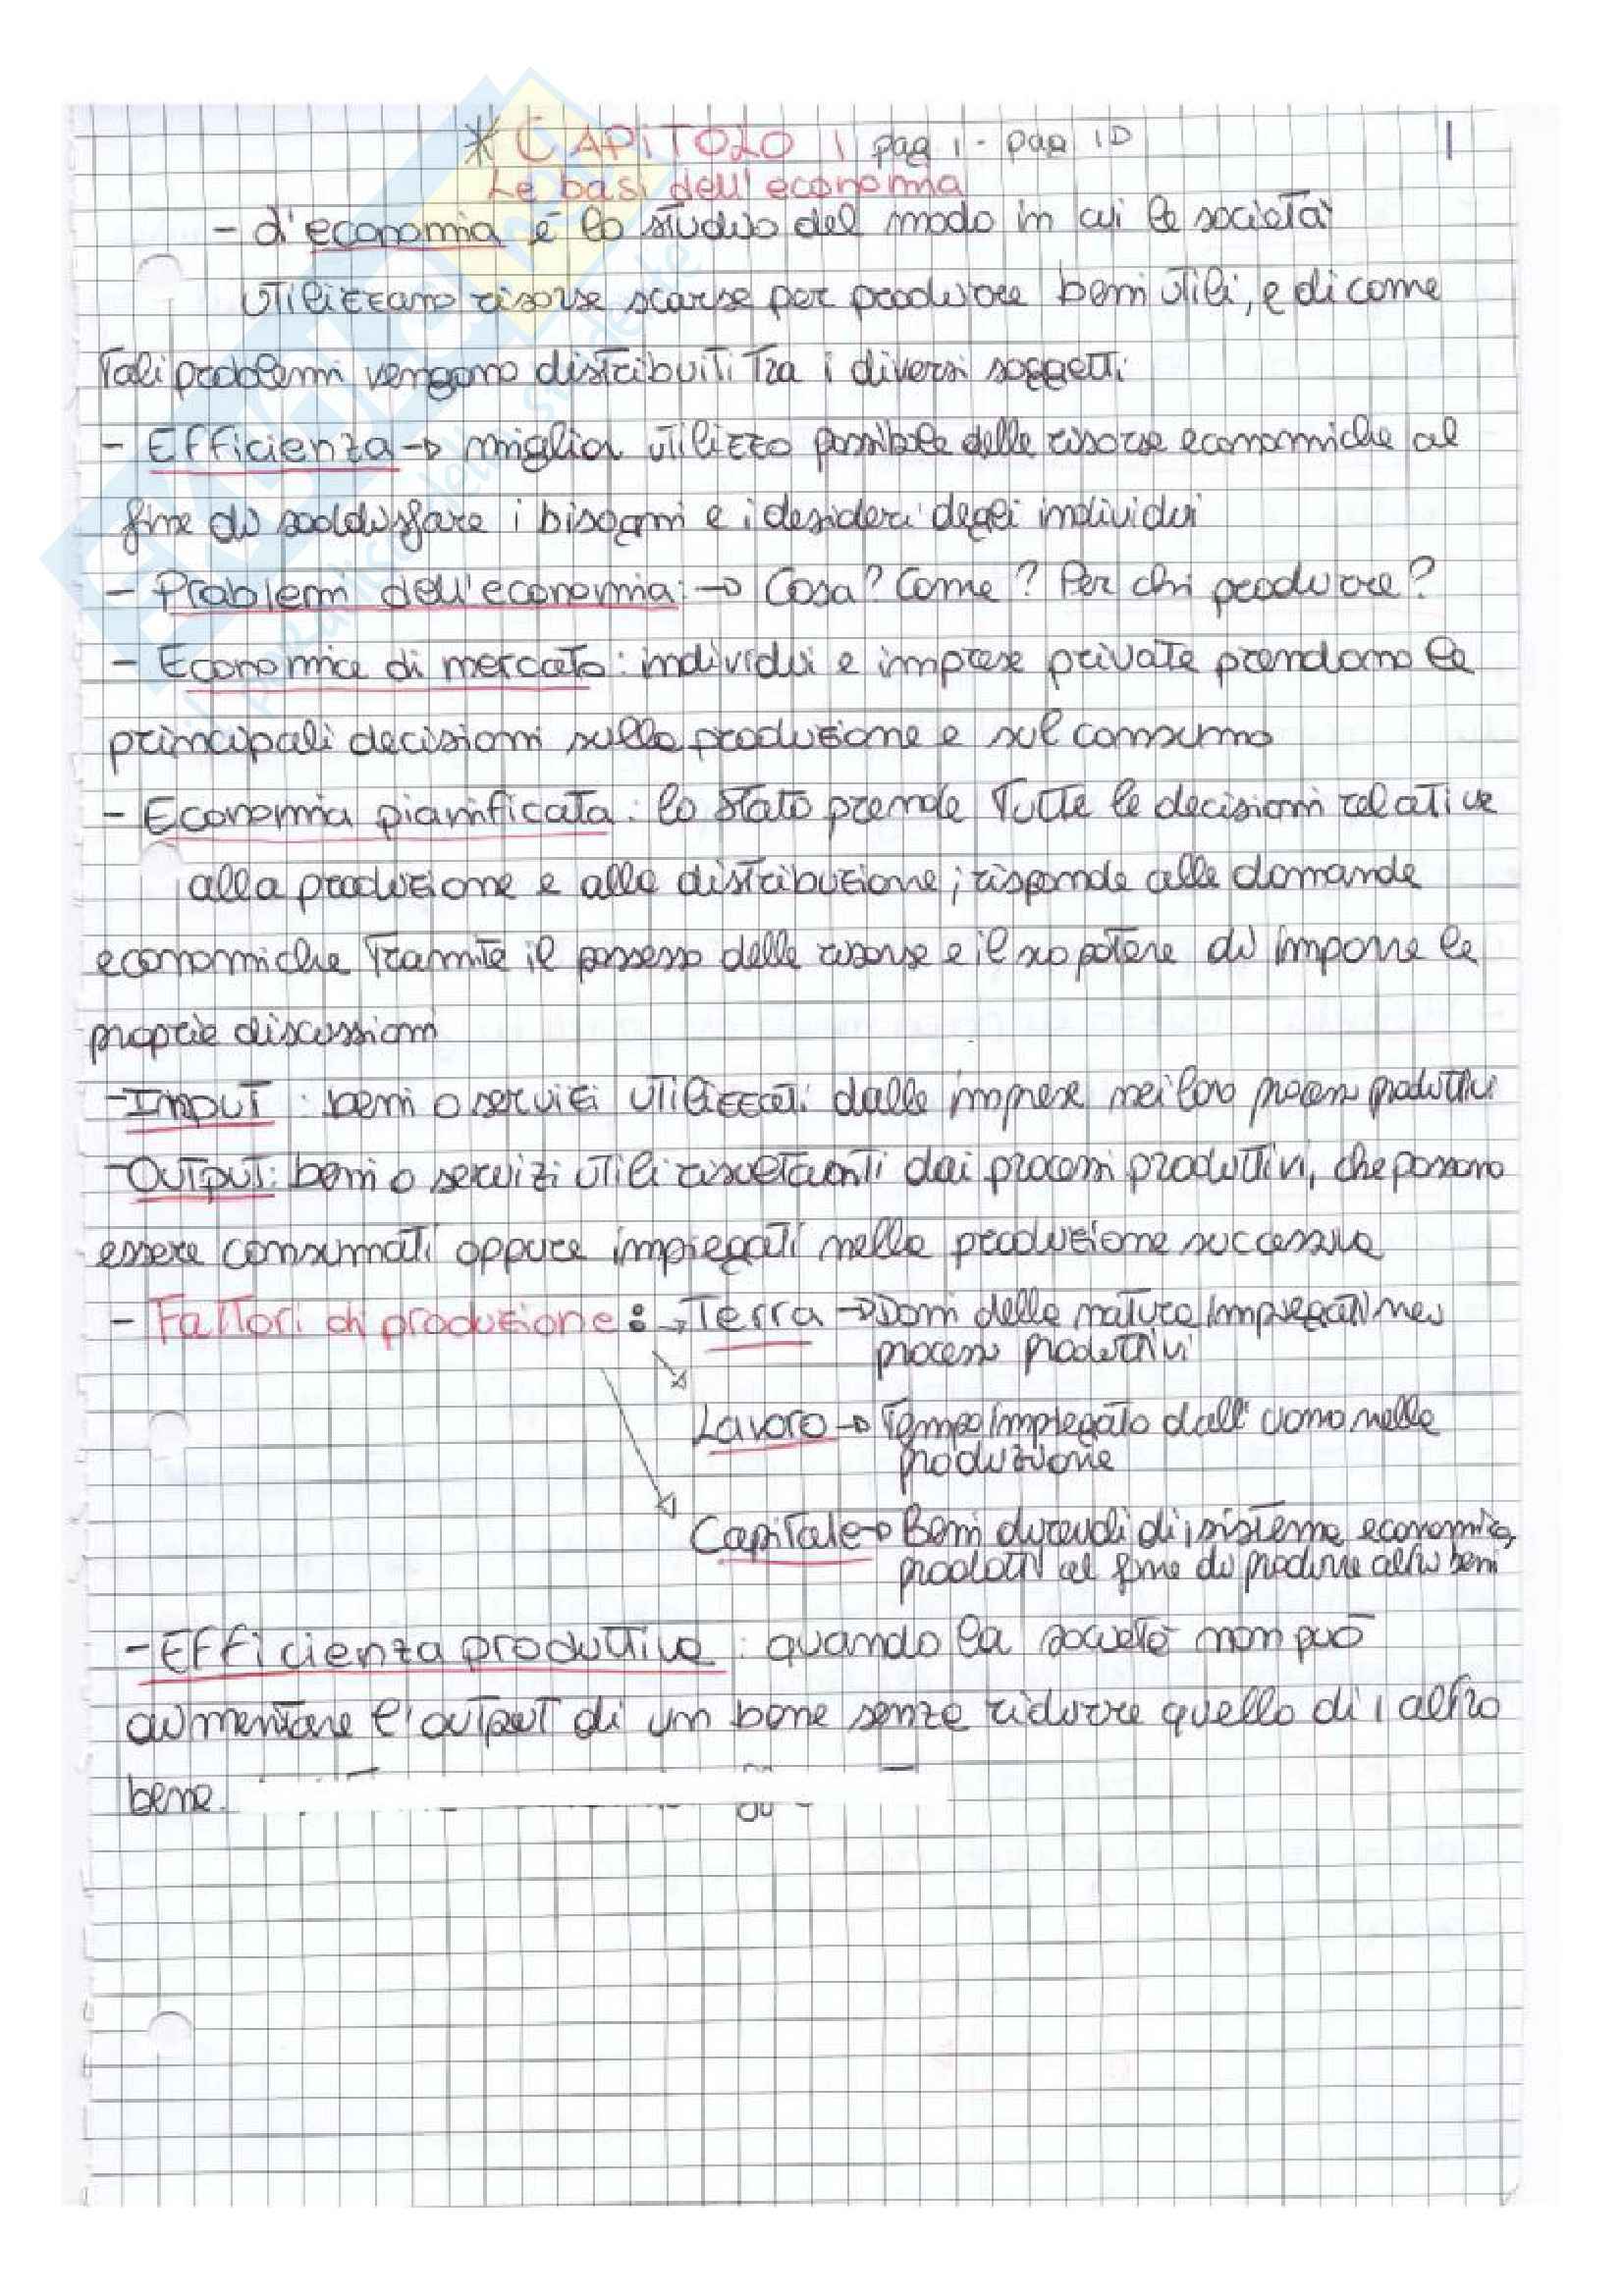 * CAPITOLO 1 pag 1 - pag 10
1
Le basi dell'economia
- L'economia è lo studio del modo in cui le società
utilizzano risorse scarse per produrre beni utili, e di come
tali problemi vengono distribuiti tra i diversi soggetti
- Efficienza → miglior utilizzo possibile delle risorse economiche al
fine di soddisfare i bisogni e i desideri degli individui
- Problemi dell'economia: → Cosa? Come? Per chi produrre?
- Economia di mercato: individui e imprese private prendono le
principali decisioni sulla produzione e sul consumo
- Economia pianificata: lo stato prende tutte le decisioni relative
alla produzione e alla distribuzione; risponde alle domande
economiche tramite il possesso delle risorse e il suo potere di imporre le
proprie discussioni
- Input: beni o servizi utilizzati dalle imprese nei loro processi produttivi
- Output: beni o servizi utili risultanti dai processi produttivi, che possono
essere consumati oppure impiegati nella produzione successiva
- Fattori di produzione: → Terra → Doni della natura impiegati nei
processi produttivi
Lavoro → Tempo impiegato dall'uomo nella
produzione
Capitale → Beni durevoli di 1 sistema economico,
prodotti al fine di produrre altri beni
- Efficienza produttiva: quando la società non può
aumentare l'output di un bene senza ridurre quello di 1 altro
bene.